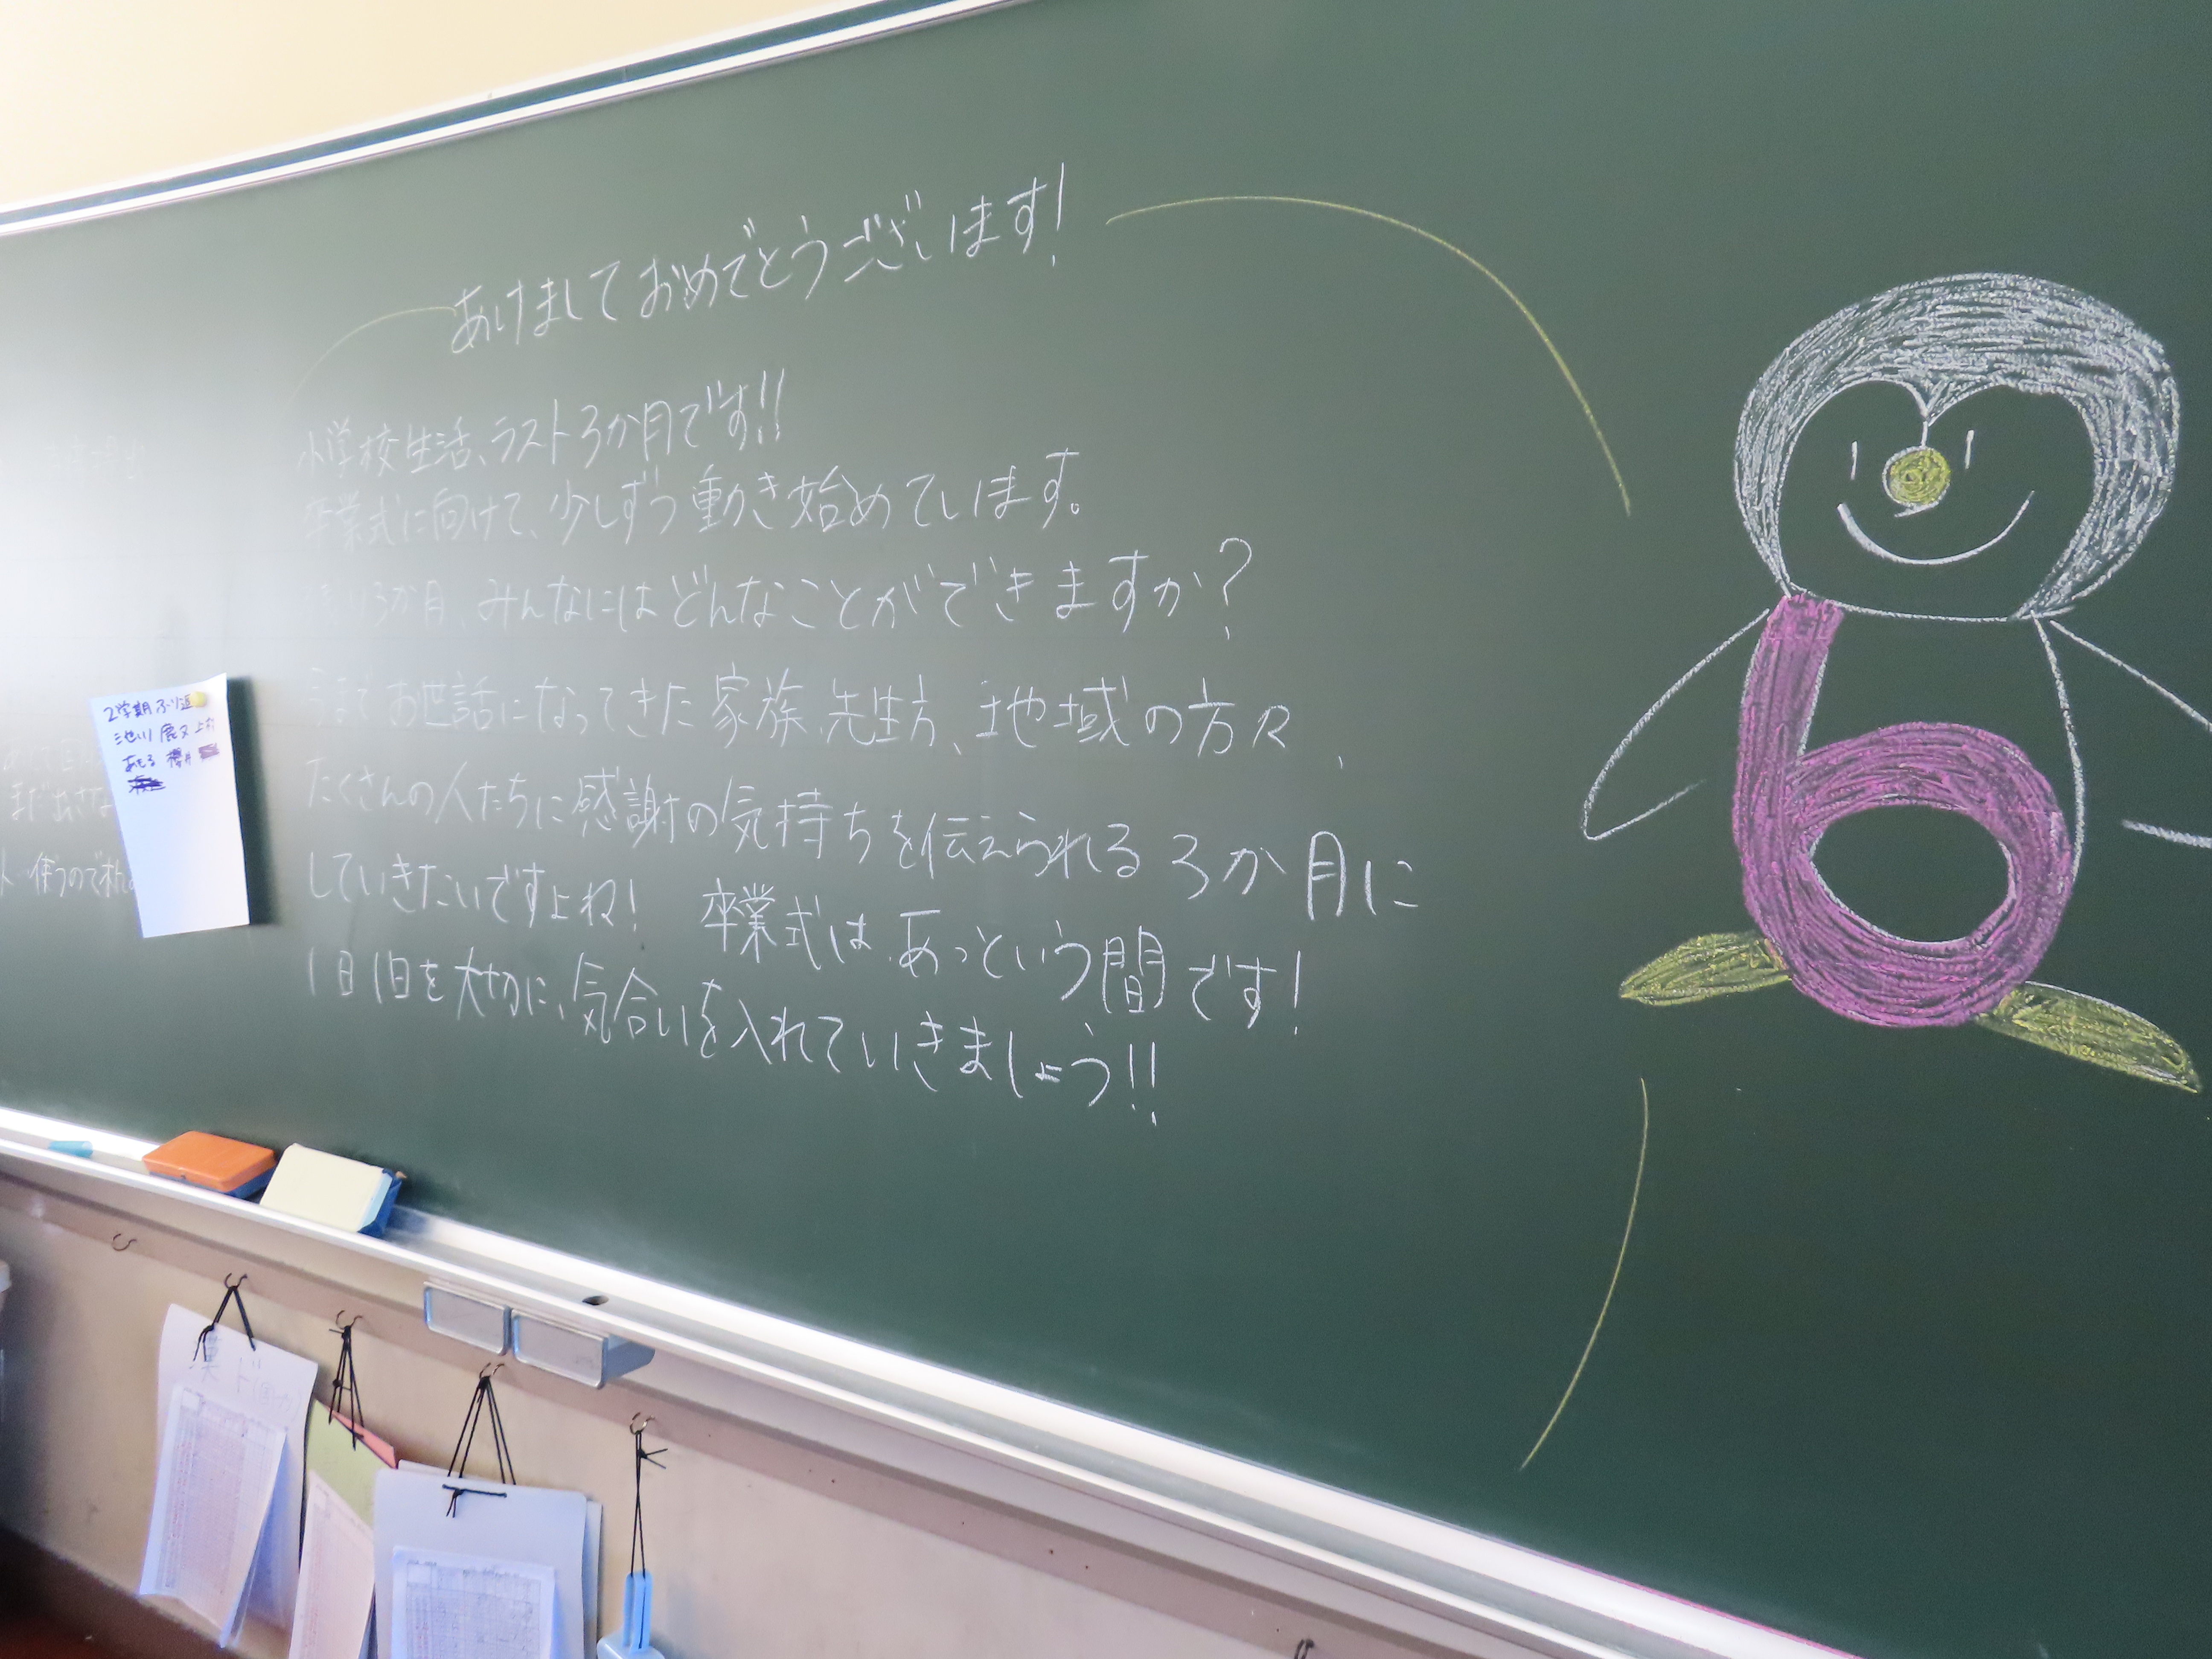 あけましておめでとうございます!
小学校生活、ラスト3か月です!!
卒業式に向けて、少しずつ動き始めています。
3か月、みんなにはどんなことができますか?
今までお世話になってきた家族、先生方、地域の方々、
たくさんの人たちに感謝の気持ちを伝えられる3か月に
していきたいですよね! 卒業式はあっという間です!
1日1日を大切に、気合いを入れていきましょう!!
6
2学期ふり返
池川
あもる 櫻井
使うので
漢ド